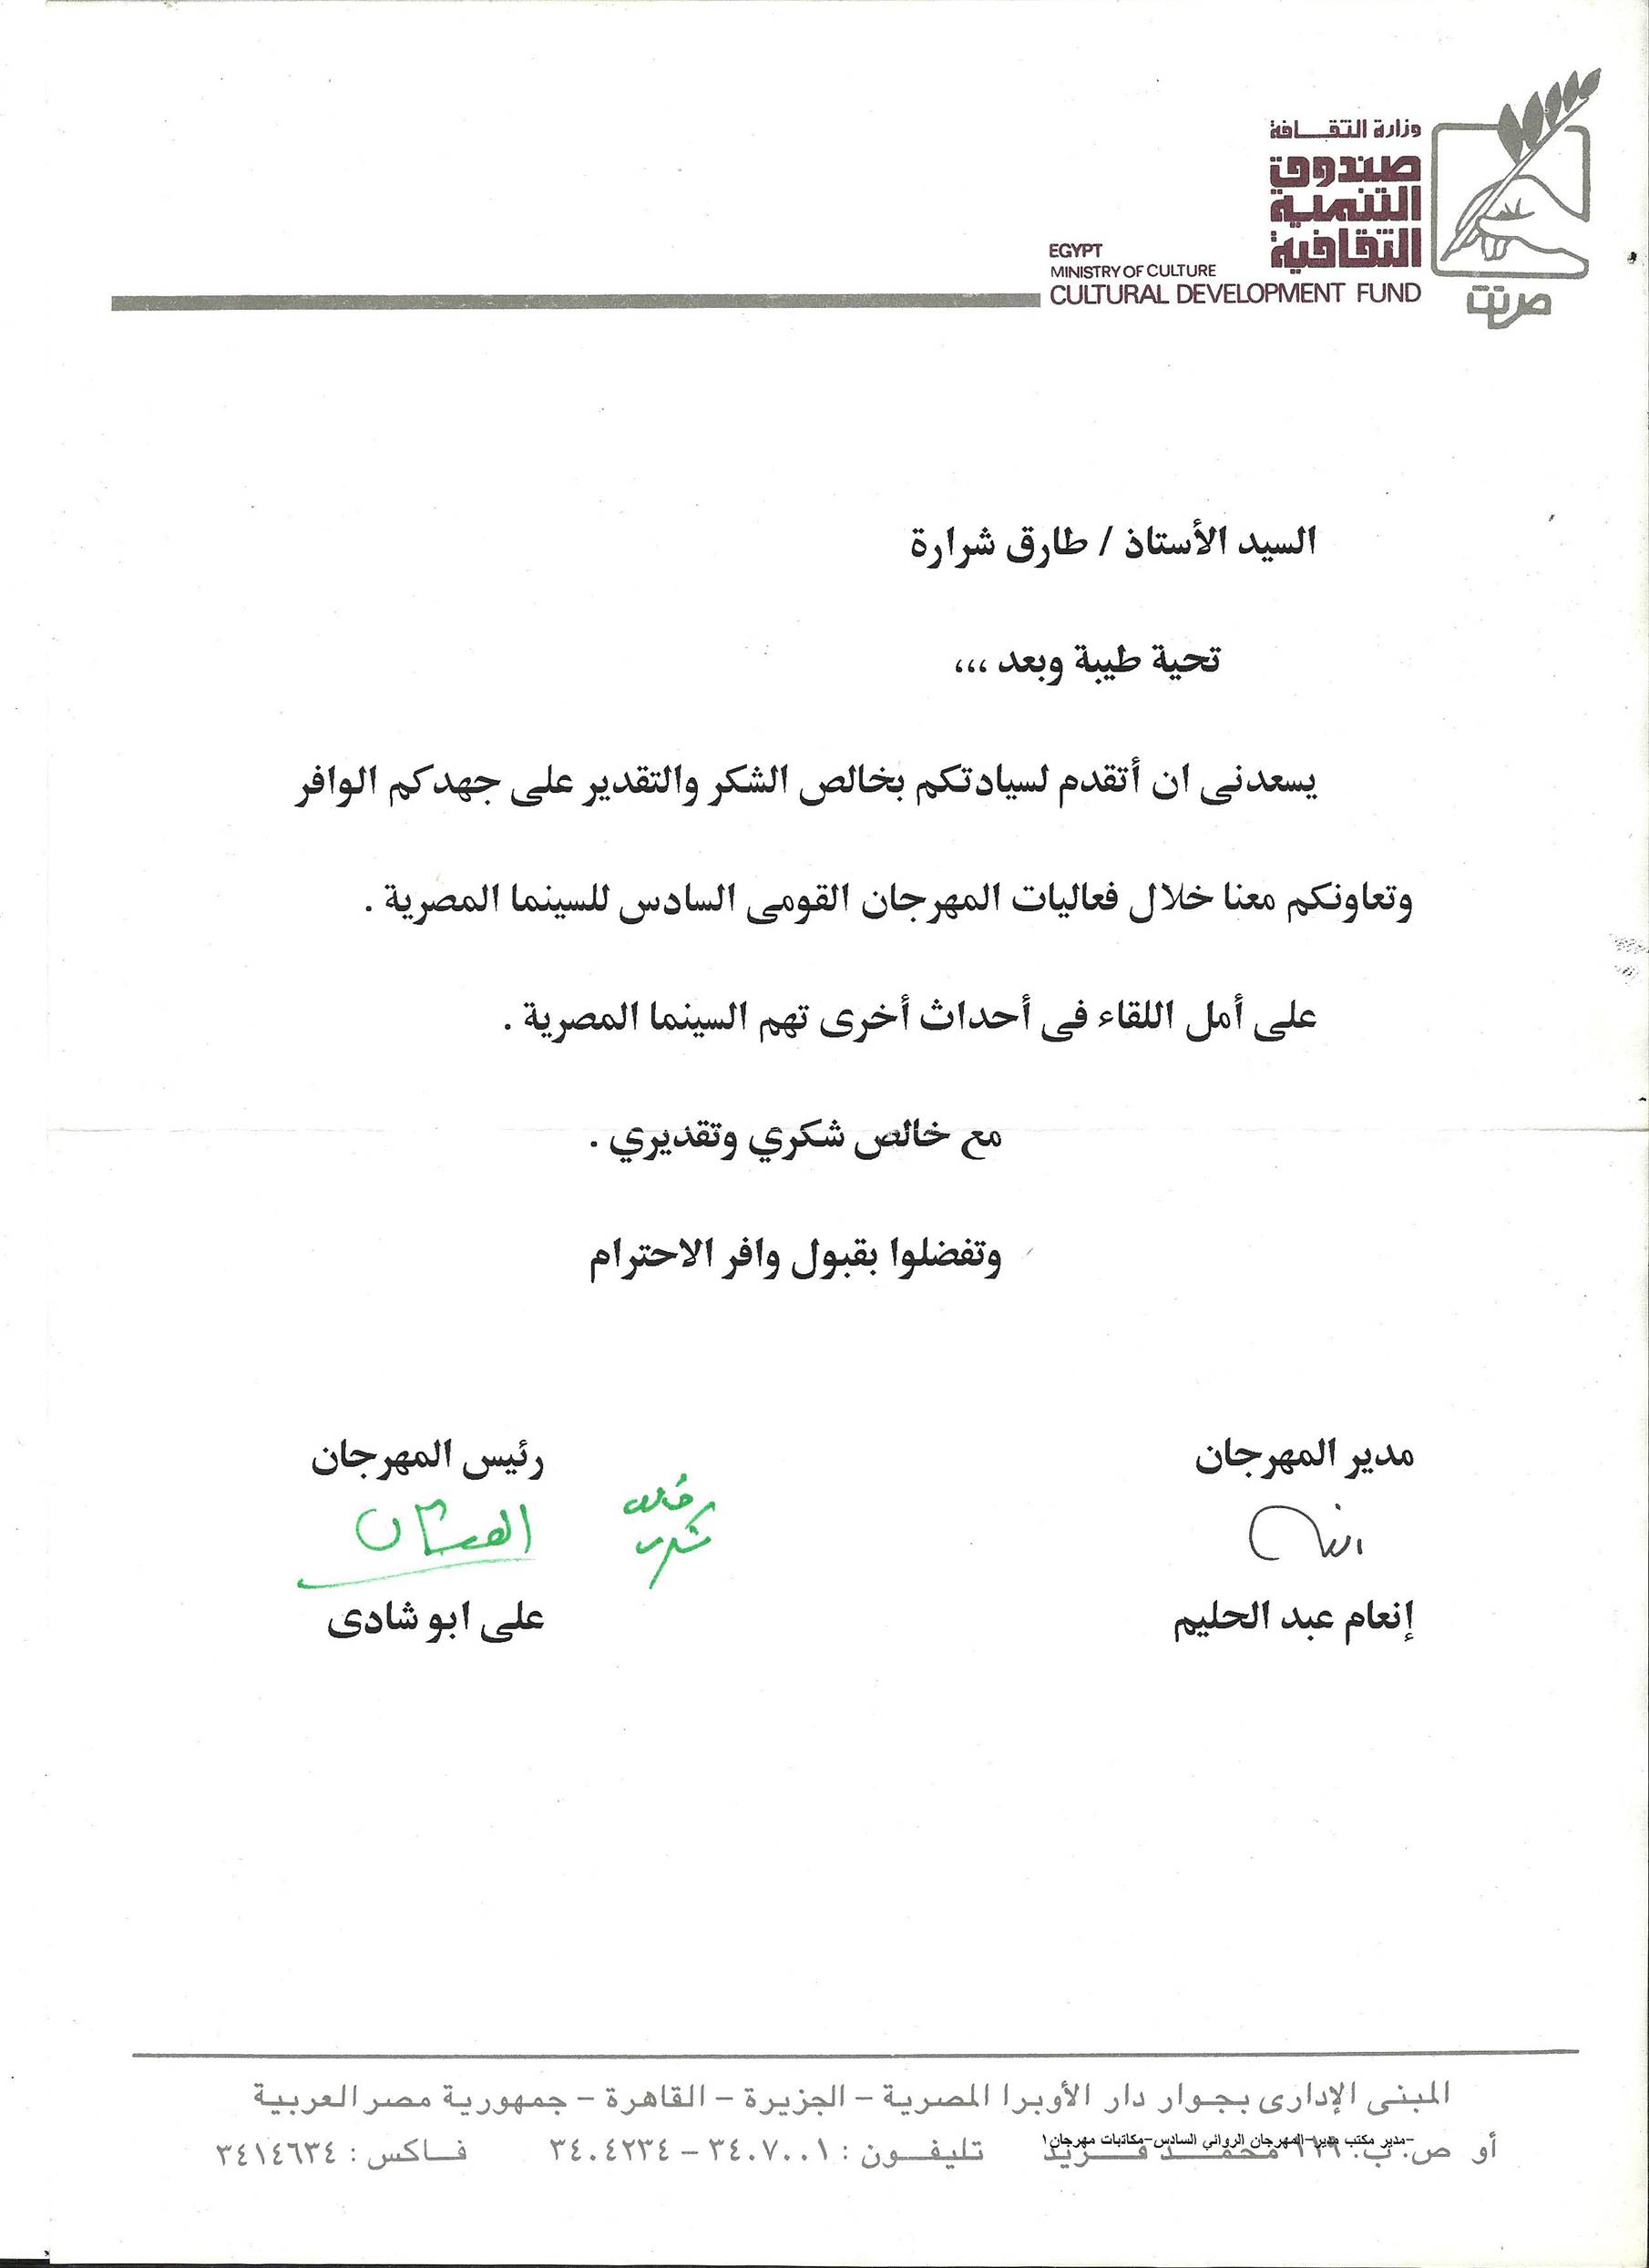 وزارة الثقافة
صندوق
التنمية
الثقافية
EGYPT
MINISTRY OF CULTURE
CULTURAL DEVELOPMENT FUND
صرتت
السيد الأستاذ / طارق شرارة
تحية طيبة وبعد ،،،
يسعدنى ان أتقدم لسيادتكم بخالص الشكر والتقدير على جهدكم الوافر
وتعاونكم معنا خلال فعاليات المهرجان القومى السادس للسينما المصرية .
على أمل اللقاء فى أحداث أخرى تهم السينما المصرية .
مع خالص شكري وتقديري .
وتفضلوا بقبول وافر الاحترام
مدير المهرجان
رئيس المهرجان
إنعام عبد الحليم
على ابو شادى
المبنى الإدارى بجوار دار الأوبرا المصرية – الجزيرة – القاهرة – جمهورية مصر العربية
-مدير مكتب مدير-المهرجان الروائي السادس-مكاتبات مهرجان١
أو ص. ب. محمد فريد تليفون : ٣٤٠٧٠٠١ – ٣٤٠٤٢٣٤ فاكس : ٣٤١٤٦٣٤